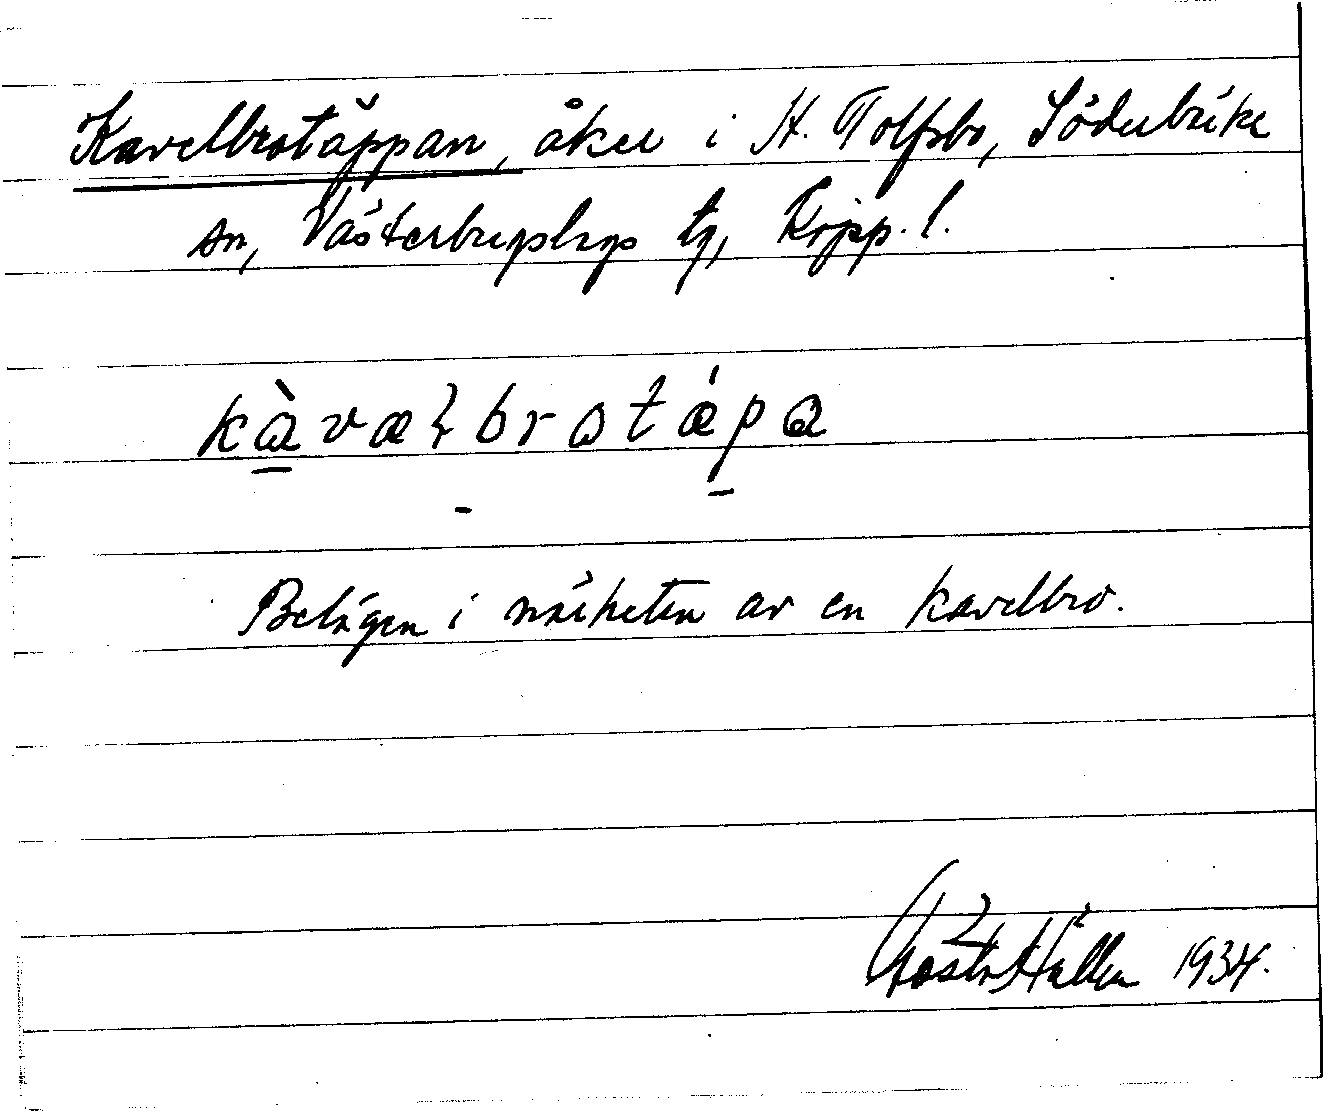 Kavelbrotäppan, åker i St. Tolfsbo, Söderbärke
sn, Västerbergslags tg, Kopp. l.
kàvælbrotǽpa
Belägen i närheten av en kavelbro.
Gösta Hallén 1934.